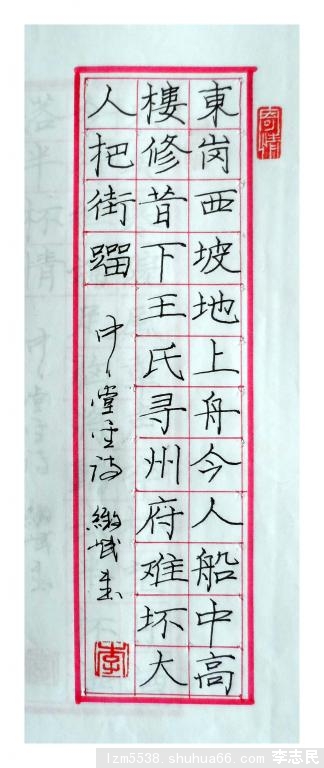 東岗西坡地上舟今人船中高
樓修昔下王氏寻州府难坏大
人把街蹓
中〻堂主诗 缴民书
奇情
李
lzm5538.shuhua66.com 李志民